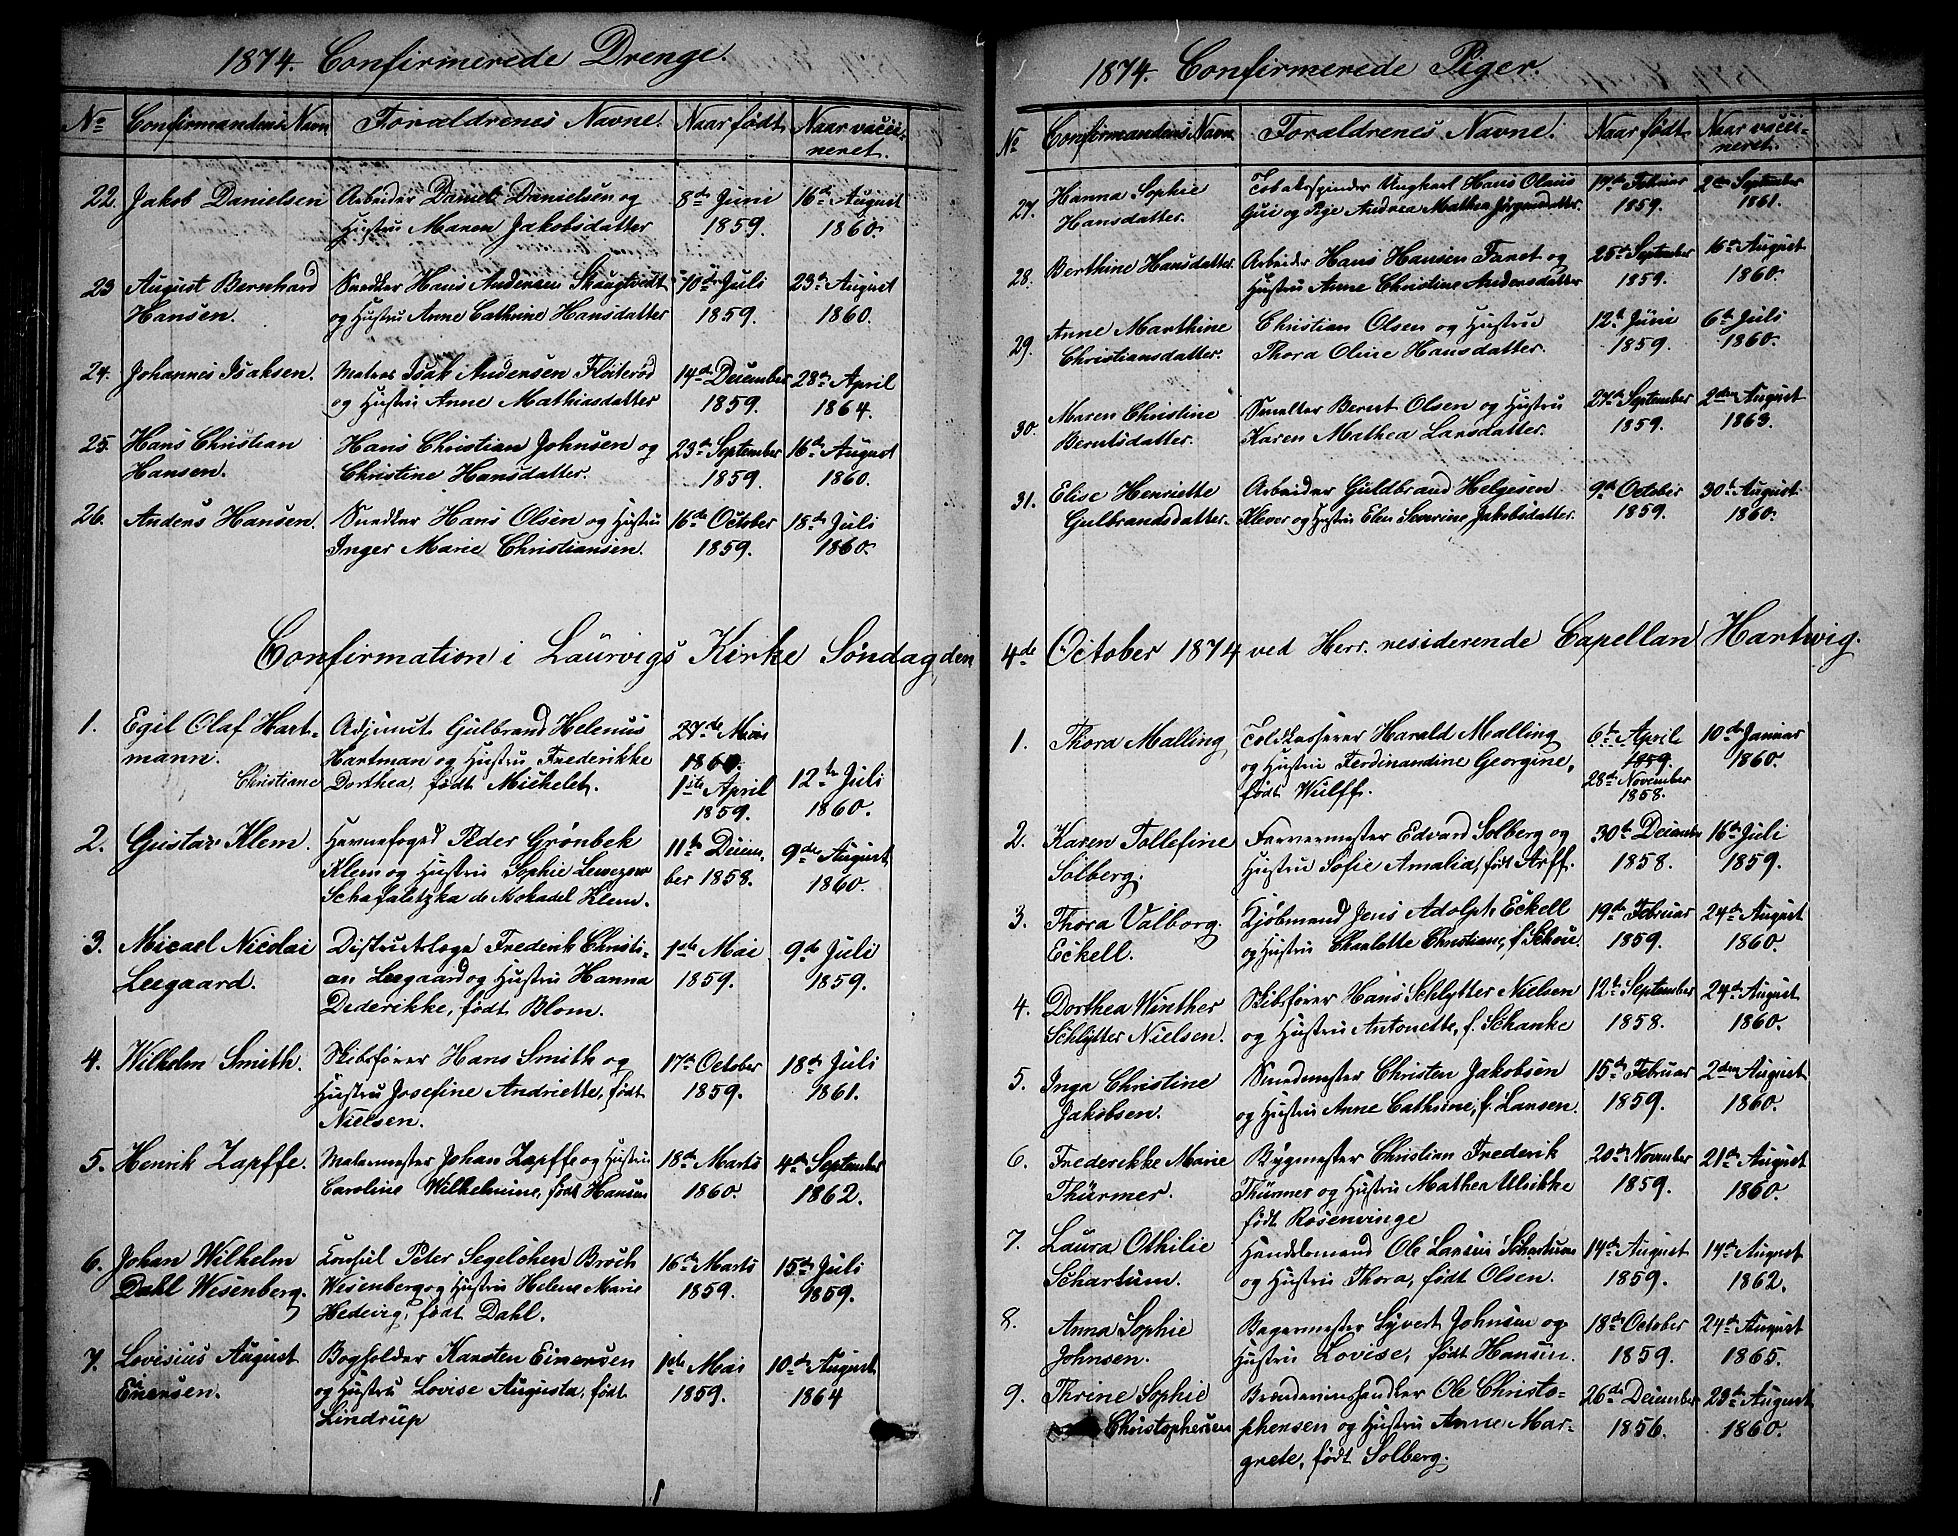 1874. Confirmerede Drenge.
No Confirmandens Navn Forældrenes Navne. Naar født Naar vacci-
neret.
22. Jakob Danielsen Arbeider Daniel Danielsen og 8de Juni 16de August
Hustru Maren Jakobsdatter 1859. 1860.
23 August Bernhard Snedker Hans Andersen Skougtvedt 10de Juli 23de August
Hansen. og Hustru Anne Cathrine Hansdatter 1859. 1860.
24. Johannes Isaksen. Matros Isak Andersen Fløiterød 14de December 28de April
og Hustru Anne Mathiasdatter 1859. 1864.
25. Hans Christian Hans Christian Johnsen og 23de September 16de August
Hansen. Christine Hansdatter. 1859. 1860.
26. Anders Hansen. Snedker Hans Olsen og Hustru 16de October 18de Juli
Inger Marie Christiansen. 1859. 1860.
Confirmation i Laurvigs Kirke Søndag den
1. Egil Olaf Hart- Adjunct Gulbrand Helenus 27de Mai
mann. Hartman og Hustru Frederikke 1860.
Christiane Dorthea, født Michelet. 1ste April 12te Juli
1859. 1860.
2. Gustav Klem. Havnefoged Peder Grønbek 11te Decem- 9de August
Klem og Hustru Sophie ber 1858. 1860.
Schafalitzka de Mokadel Klem.
3. Micael Nicolai Districtslæge Frederik Christi- 1ste Mai 9de Juli
Leegaard. an Leegaard og Hustru Hanna 1859. 1859.
Dederikke, født Blom.
4. Wilhelm Smith. Skibsfører Hans Smith og 17de October 18de Juli
Hustru Josefine Andriette, født 1859. 1861.
Nielsen.
5. Henrik Zapffe. Malermester Johan Zapffe og Hustru 18de Marts 4de September
Caroline Wilhelmine, født Hansen 1860. 1862.
6. Johan Wilhelm Consul Peter Segelchen Broch 16de Marts 15de Juli
Dahl Wesenberg. Wesenberg og Hustru Helene Marie 1859. 1859.
Hedevig, født Dahl.
7. Lovisius August Bogholder Karsten Einersen 1ste Mai 10de August
Enersen. og Hustru Lovise Augusta, født 1859. 1864
Lindrup
1874. Confirmerede Piger.
No Confirmandens Navn Forældrenes Navne. Naar født. Naar vacci-
neret.
27. Hanna Sophie Tobakspinder Ungkarl Hans Olaus 19de Februar 2den September
Hansdatter. Gui og Pige Andrea Mathea Jørgensdatter. 1859. 1861.
28. Berthine Hansdatter. Arbeider Hans Hansen Faret og 25de September 16de August
Hustru Anne Christine Andersdatter 1859. 1860.
29. Anne Marthine Christian Olsen og Hustru 12te Juni 6te Juli
Christiansdatter. Thora Oline Hansdatter. 1859. 1860.
30. Maren Christine Smelter Bernt Olsen og Hustru 27de September 2den August
Berntsdatter. Karen Mathea Larsdatter. 1859. 1863.
31. Elise Henriette Arbeider Guldbrand Helgesen 9de October 30te August
Gulbrandsdatter. Klever og Hustru Elen Severine Jakobsdatter. 1859. 1860.
4de October 1874 ved Herr. residerende Capellan Hartwig.
1. Thora Malling Toldkasserer Harald Malling 6te April 10de Januar
og Hustru Ferdinandine Georgine, 1859. 1860.
født Wulff. 28de November
1858.
2. Karen Tollefine Farvermester Edvard Solberg og 30te December 16de Juli
Solberg. Hustru Sofie Amalia, født Arff. 1858. 1859.
3. Thora Valborg. Kjøbmand Jens Adolph Eckell 19de Februar 24de August
Eckell. og Hustru Charlotte Christiane, f. Schou. 1859. 1860.
4. Dorthea Winther Skibsfører Hans Schlytter Nielsen 12te September 24de August
Schlytter Nielsen. og Hustru Antonette, f. Schanke 1858. 1860.
5. Inga Christine Smedmester Christen Jakobsen 15de Februar 2den August
Jakobsen. og Hustru Anne Cathrine, f. Larsen. 1859. 1860.
6. Frederikke Marie Bygmester Christian Frederik 20de November 21de August
Thürmer. Thürmer og Hustru Mathea Ulrikke 1859. 1860.
født Rosenvinge
7. Laura Othilie Handelsmand Ole Larsen Schartum 14de August 14de August
Schartum. og Hustru Thora, født Olsen. 1859. 1862.
8. Anna Sophie Bagermester Syvert Johnsen og 18de October 24de August
Johnsen. Hustru Lovise, født Hansen. 1859. 1865.
9. Thrine Sophie Brændevinshandler Ole Christo- 26de December 23de August
Christophersen phersen og Hustru Anne Mar- 1856. 1860.
grete, født Solberg.